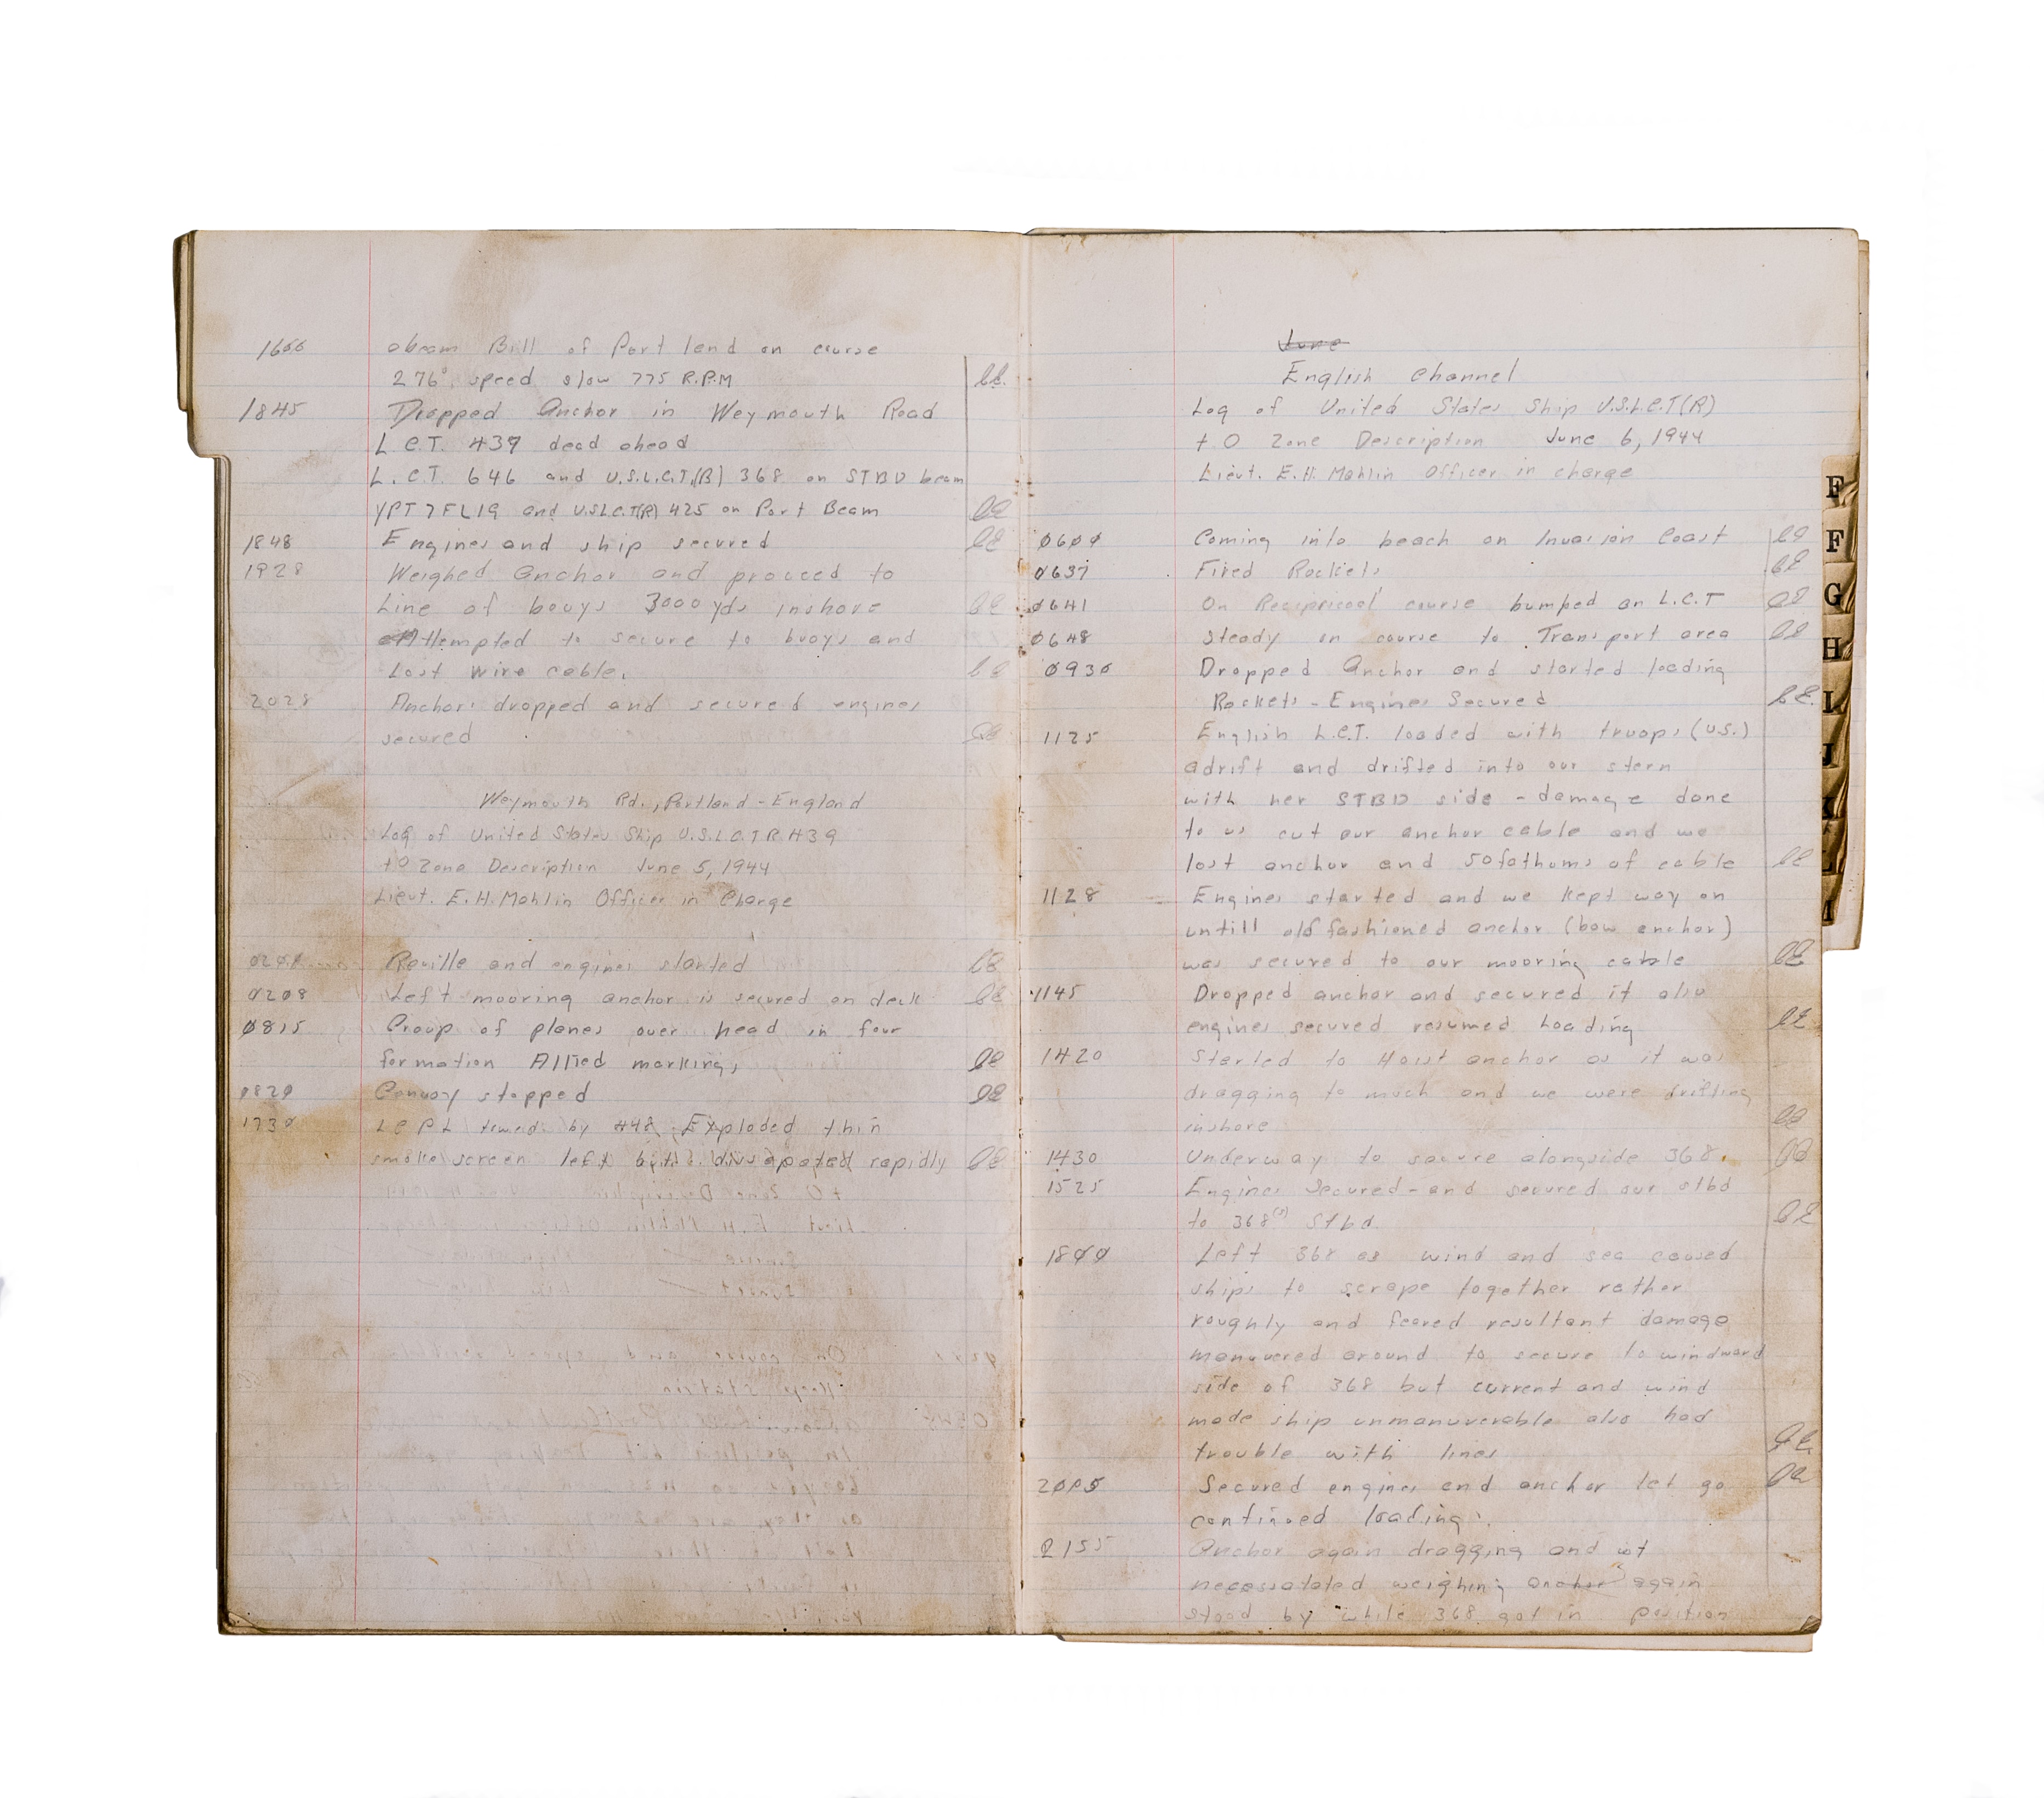 abeam Bill of Port land on course
276° speed slow 775 R.P.M
1845 Dropped Anchor in Weymouth Road
L.C.T. 439 dead ahead
L.C.T. 646 and U.S.L.C.T.(R) 368 on STBD beam
and U.S.L.C.T(R) 425 on Port Beam
1848 Engines and ship secured
1928 Weighed anchor and proceed to
Line of bouys 3000 yds inshore
Attempted to secure to buoys and
Lost wire cable.
2028 Anchor dropped and secured engines
secured
Weymouth Rd., Portland - England
Log of United States Ship U.S.L.C.T.R 439
+0 Zone Description June 5, 1944
Lieut. E.H. Mahlin Officer in Charge
Reville and engines started
0208 Left mooring anchor is secured on deck
0815 Group of planes over head in four
formation Allied markings
0820 Convoy stopped
1730 towed by 448 Exploded thin
smoke screen left rapidly
June
English Channel
Log of United States Ship U.S.L.C.T(R)
+0 Zone Description June 6, 1944
Lieut. E.H. Mahlin Officer in charge
0600 Coming into beach on Invasion Coast
0637 Fired Rockets
0641 On Recipricool course bumped an L.C.T
0648 steady on course to Transport area
0930 Dropped Anchor and started loading
Rockets - Engines Secured
1125 English L.C.T. loaded with troops (U.S.)
adrift and drifted into our stern
with her STBD side - damage done
to us cut our anchor cable and we
lost anchor and 50 fathoms of cable
1128 Engines started and we kept way on
untill old fashioned anchor (bow anchor)
was secured to our mooring cable
1145 Dropped anchor and secured it also
engines secured resumed Loading
1420 Started to Hoist anchor as it was
dragging to much and we were drifting
inshore
1430 Underway to secure alongside 368.
1525 Engines Secured - and secured our stbd
to 368(s) Stbd.
1800 Left 368 as wind and sea caused
ships to scrape together rather
roughly and feared resultant damage
manuvered around to secure to windward
side of 368 but current and wind
made ship unmanuverable also had
trouble with lines
2005 Secured engines and anchor let go
continued loading.
2155 Anchor again dragging and
necessatated weighing anchor again
stood by while 368 got in position